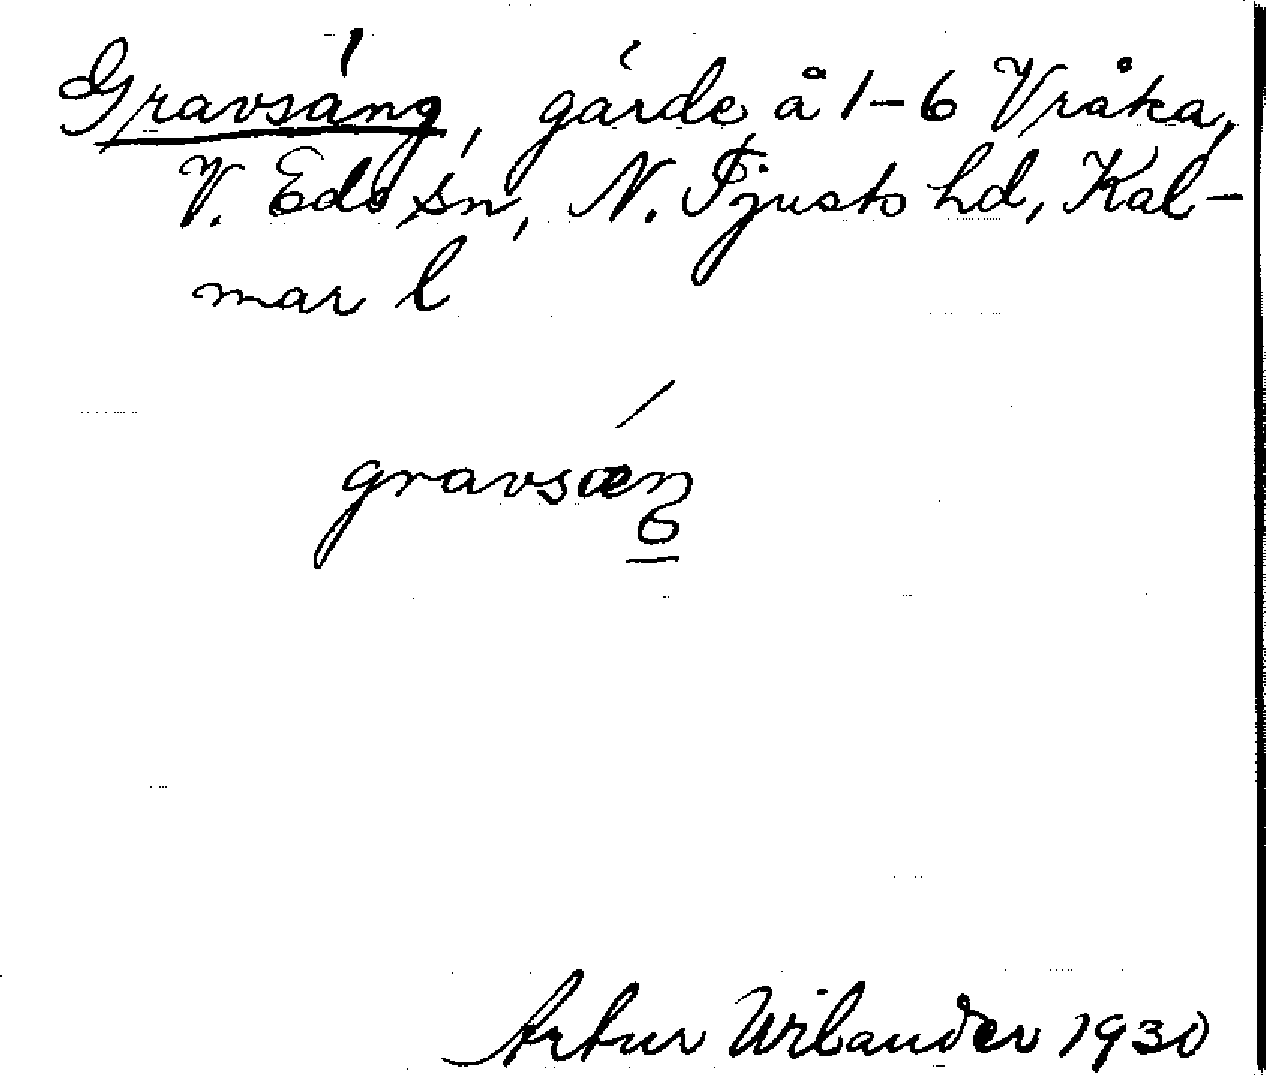 Gravsäng, gärde å 1-6 Vråka,
V. Eds sn, N. Tjusts hd, Kal-
mar l
gravsæŋ
6
Artur Wilander 1930